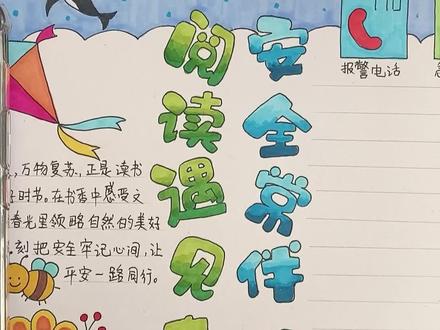 阅读遇见
安全常伴
报警电话
,万物复苏,正是读书
时书。在书香中感受文
春光里领略自然的美好
刻把安全牢记心间,让
平安一路同行。